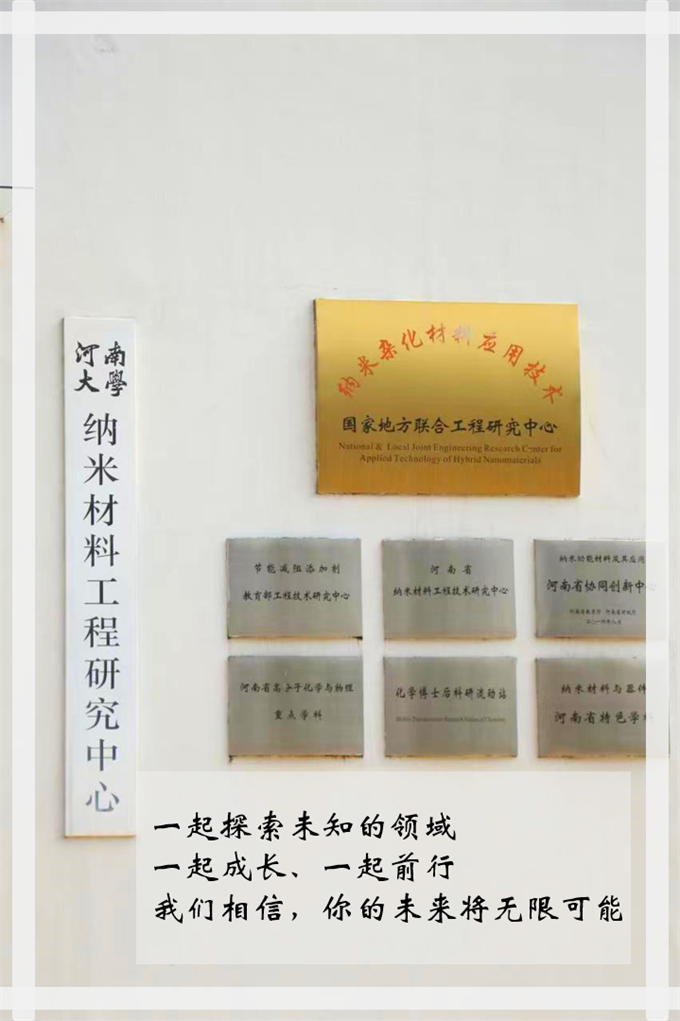 河南
大學
纳米材料工程研究中心
纳米杂化材料应用技术
国家地方联合工程研究中心
National & Local Joint Engineering Research Center for
Applied Technology of Hybrid Nanomaterials
节能减阻添加剂
教育部工程技术研究中心
河南省
纳米材料工程技术研究中心
纳米功能材料及其应用
河南省协同创新中心
河南省教育厅 河南省财政厅
河南省高分子化学与物理
重点学科
化学博士后科研流动站
纳米材料与器件
河南省特色学科
一起探索未知的领域
一起成长、一起前行
我们相信，你的未来将无限可能